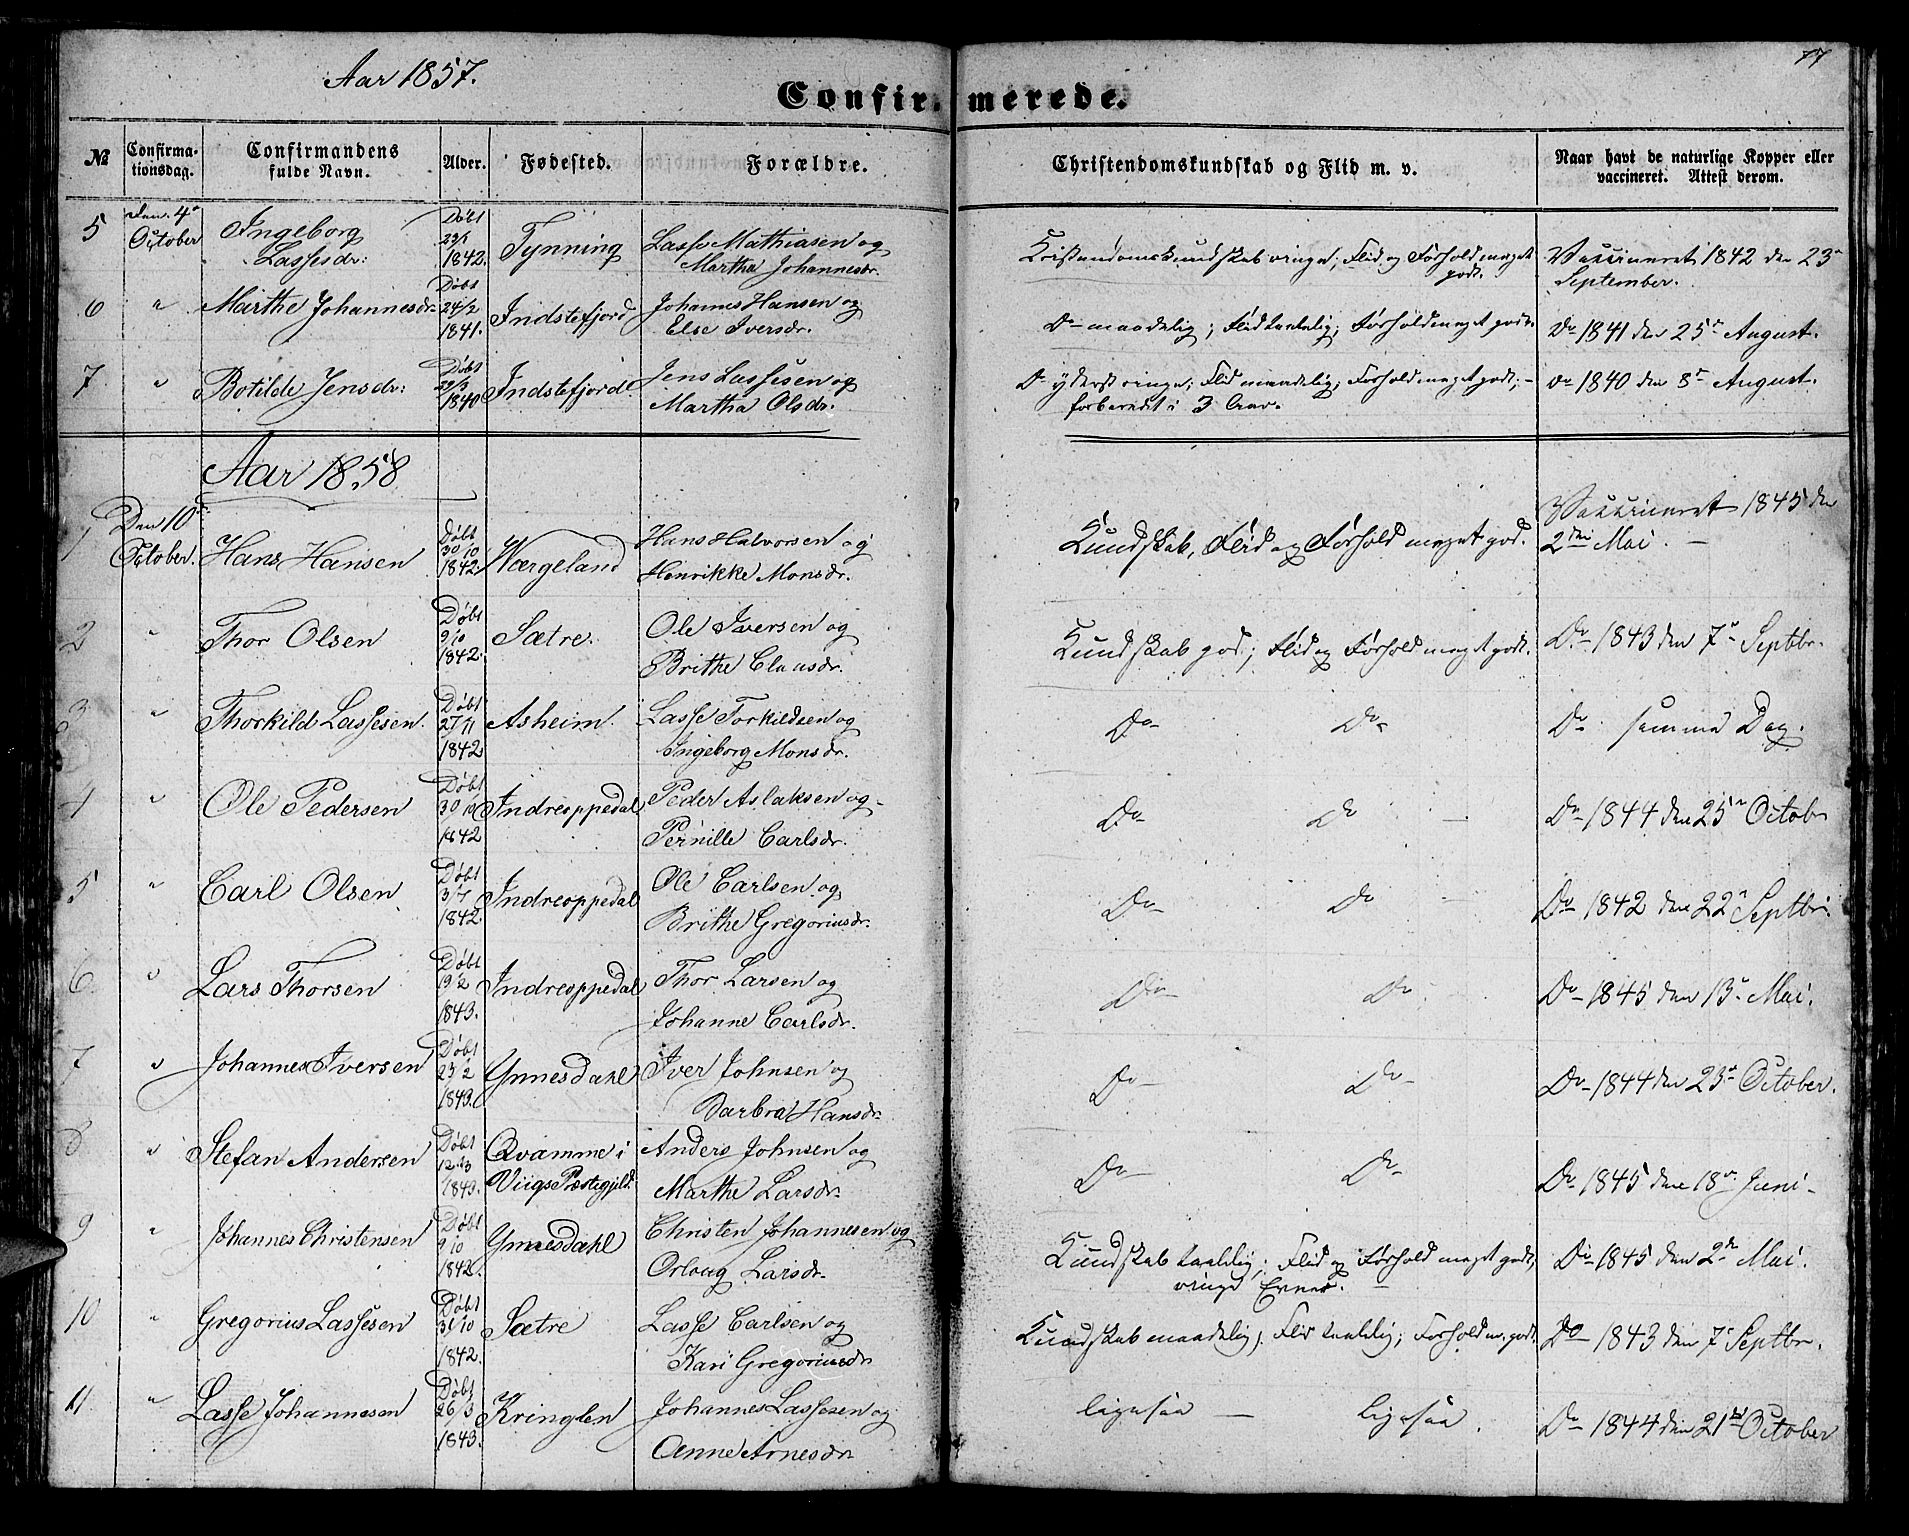 77
Aar 1857.
Confirmerede.
№ | Confirmationsdag. | Confirmandens fulde Navn. | Alder. | Fødested. | Forældre. | Christendomskundskab og Flid m. v. | Naar havt de naturlige Kopper eller vaccineret. Attest derom.
5 | Den 4de October | Ingeborg Lassesdr: | Døbt 29/1 1842. | Tynning | Lasse Mathiasen og Martha Johannesdr. | Kristendomskundskab ringe; Flid og Forhold meget godt. | Vaccineret 1842 den 23de September.
6 | " | Marthe Johannesdr. | Døbt 24/2 1841. | Indstefjord | Johannes Hansen og Else Iversdr. | Do maadelig; Flid taalelig; Forhold meget godt. | Do 1841 den 25de August.
7. | " | Botilde Jensdr: | Døbt 29/3 1840 | Indstefjord | Jens Lassesen og Martha Olsdr. | Do yderst ringe; Flid maadelig; Forhold meget godt; forberedt i 3 Aar. | Do 1840 den 8de August.
Aar 1858
1 | Den 10de October. | Hans Hansen | Døbt 30/10 1842. | Værgeland | Hans Halvorsen og Henrikke Monsdr. | Kundskab, Flid og Forhold meget god. | Vaccineret 1845 den 2den Mai.
2 | " | Thor Olsen | Døbt 9/10 1842. | Sætre. | Ole Iversen og Brithe Clausdr. | Kundskab god; Flid og Forhold meget godt. | Do 1843 den 7de Septbr.
3 | " | Thorkild Lassesen. | Døbt 27/11 1842 | Asheim. | Lasse Torkildsen og Ingeborg Monsdr. | Do Do | Do samme Dag.
4 | " | Ole Pedersen | Døbt 30/10 1842 | Indreoppedal | Peder Aslaksen og Pernille Carlsdr. | Do Do | Do 1844 den 25de Octobr
5 | " | Carl Olsen | Døbt 3/7 1842. | Indreoppedal | Ole Carlsen og Brithe Gregoriusdr. | Do Do | Do 1842 den 22de Septbr.
6 | " | Lars Thorsen | Døbt 19/2 1843. | Indreoppedal | Thor Larsen og Johanne Carlsdr. | Do Do | Do 1845 den 13de Mai.
7 | " | Johannes Iversen | Døbt 23/2 1843. | Ynnesdahl | Iver Johnsen og Barbra Hansdr. | Do Do | Do 1844 den 23de October.
8 | " | Stefan Andersen | Døbt 12/3 1843. | Qvamme i Viigs Præstegjeld. | Anders Johnsen og Marthe Larsdr. | Do Do | Do 1845 den 18de Juni
9 | " | Johannes Christensen | Døbt 9/10 1842. | Ynnesdahl | Christen Johannesen og Orloug Larsdr. | Kundskab taalelig; Flid og Forhold meget godt; ringe Evner. | Do 1845 den 2den Mai.
10 | " | Gregorius Lassesen | Døbt 31/10 1842. | Sætre | Lasse Carlsen og Kari Gregoriusdr | Kundskab maadelig; Flid taalelig; Forhold m. godt. | Do 1843 den 7de Septbr.
11. | " | Lasse Johannesen | Døbt 26/3 1843. | Kringlen | Johannes Lassesen og Anne Arnesdr | ligesaa ligesaa. | Do 1844 den 21de October